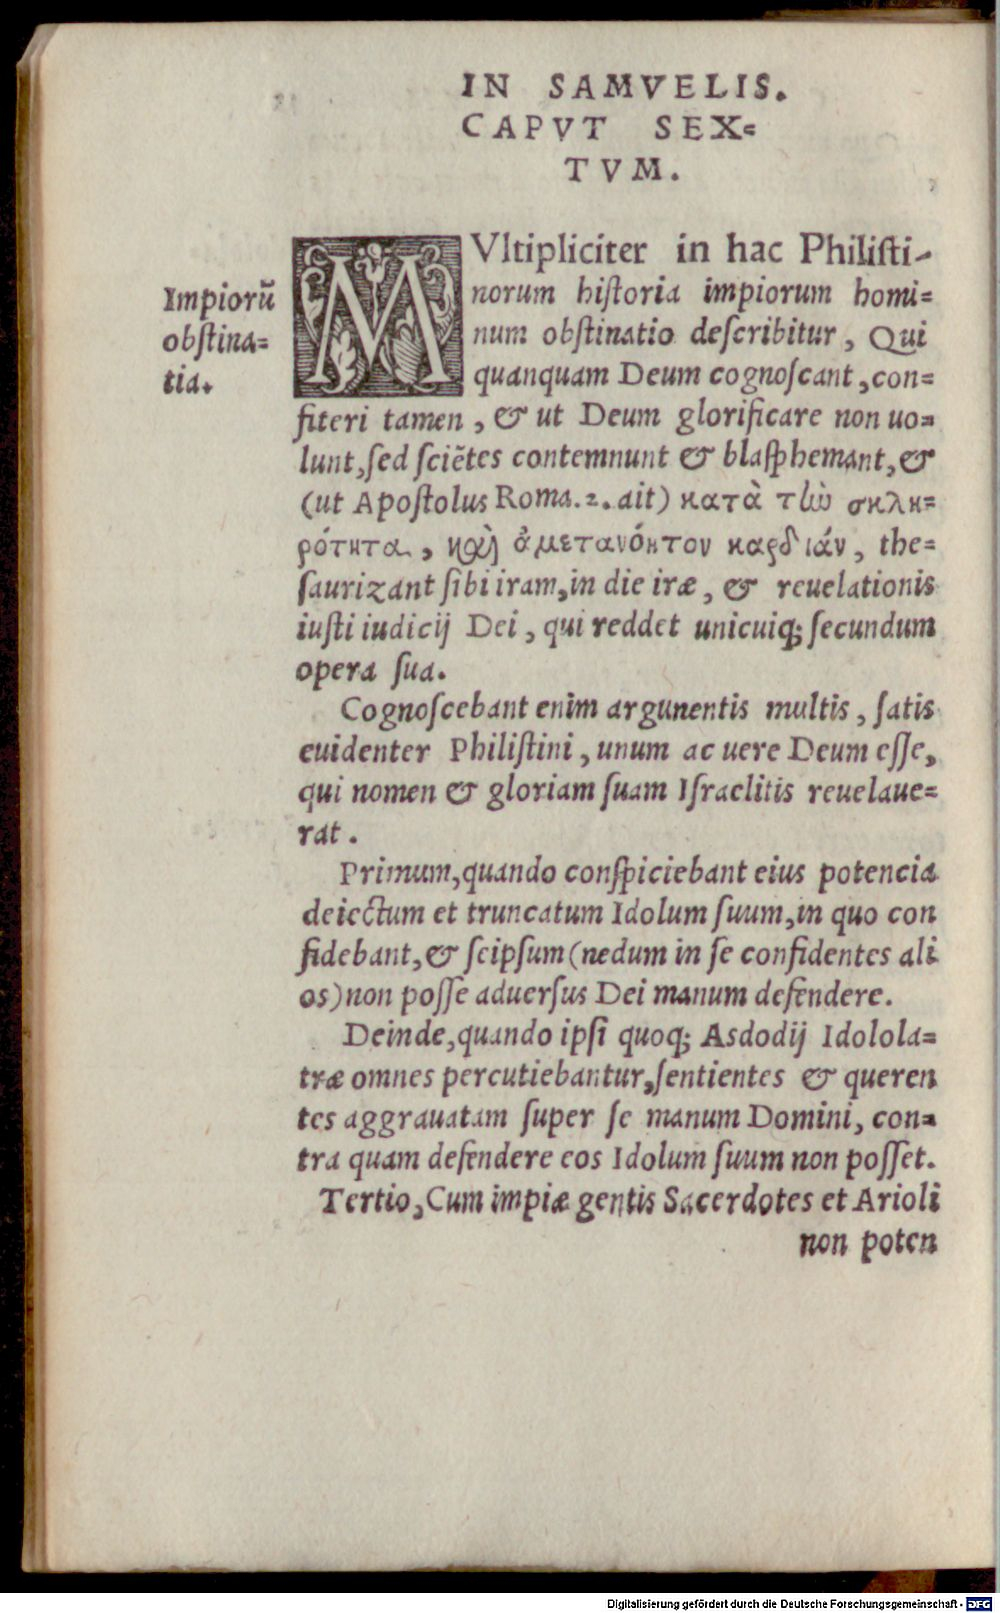 IN SAMVELIS.
CAPVT SEX=
TVM.
Impiorũ
obſtina=
tia.
MVltipliciter in hac Philiſti-
norum hiſtoria impiorum homi=
num obſtinatio deſcribitur, Qui
quanquam Deum cognoſcant, con=
fiteri tamen, & ut Deum glorificare non uo=
lunt, ſed ſciẽtes contemnunt & blaſphemant, &
(ut Apoſtolus Roma. 2. ait) κατὰ τὼ σκλη=
ρότητα, καὶ ἀμετανόητον καρδιάν, the=
ſaurizant ſibi iram, in die iræ, & reuelationis
iuſti iudicij Dei, qui reddet unicuiq; ſecundum
opera ſua.
Cognoſcebant enim argunentis multis, ſatis
euidenter Philiſtini, unum ac uere Deum eſſe,
qui nomen & gloriam ſuam Iſraelitis reuelaue=
rat.
Primum, quando conſpiciebant eius potencia
deiectum et truncatum Idolum ſuum, in quo con
fidebant, & ſeipſum (nedum in ſe confidentes ali
os) non poſſe aduerſus Dei manum defendere.
Deinde, quando ipſi quoq; Asdodij Idolola=
træ omnes percutiebantur, ſentientes & queren
tes aggrauatam ſuper ſe manum Domini, con=
tra quam defendere eos Idolum ſuum non poſſet.
Tertio, Cum impiæ gentis Sacerdotes et Arioli
non poten
Digitalisierung gefördert durch die Deutsche Forschungsgemeinschaft - DFG